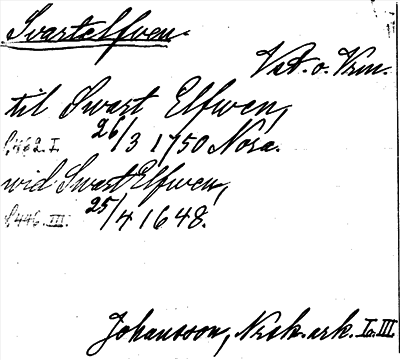 Svartelfven.
Vst. o. Vrm.
til Swart Elfwen,
S. 462. I. 26/3 1750 Nora.
wid Swart Elfwen,
S. 446. III. 25/4 1648.
Johansson, Nrsk. ark. I o. III.